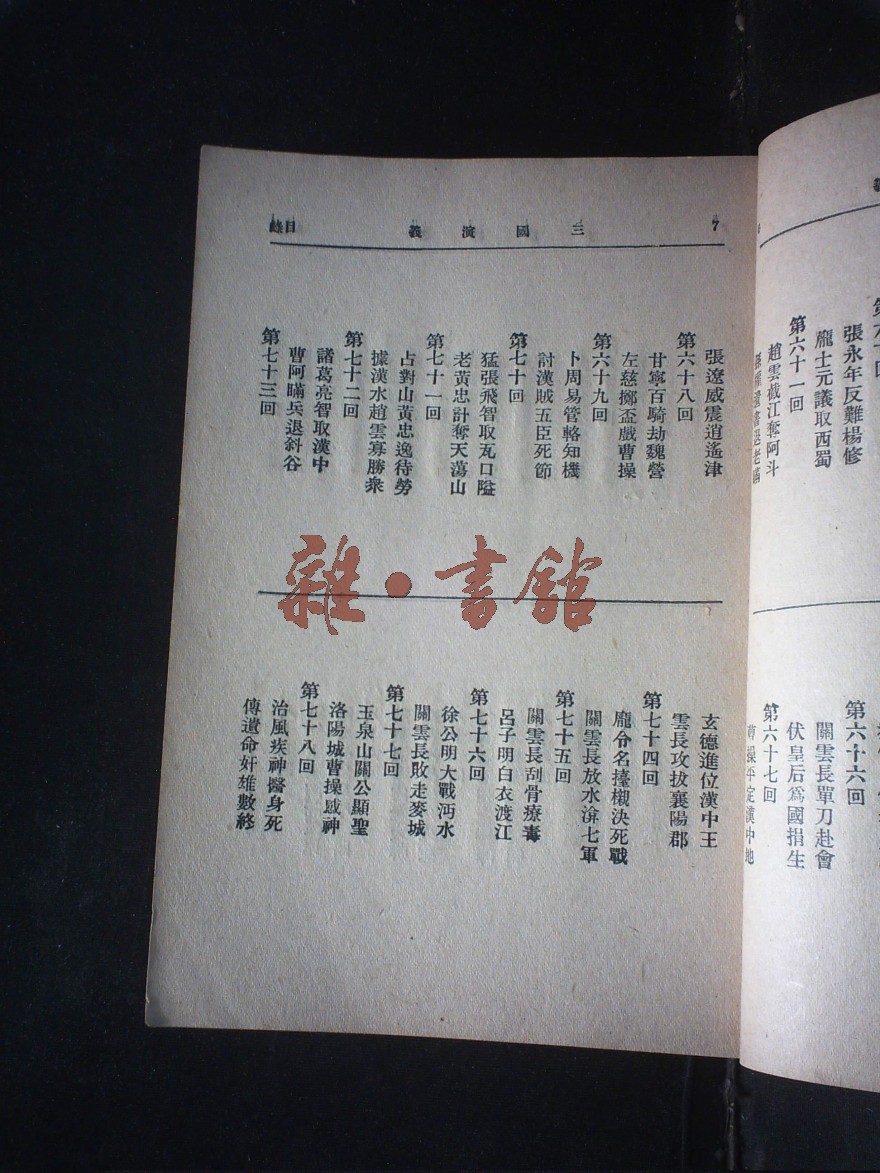 7
三國演義
目錄
張遼威震逍遙津
第六十八回
甘寧百騎劫魏營
左慈擲盃戲曹操
第六十九回
卜周易管輅知機
討漢賊五臣死節
第七十回
猛張飛智取瓦口隘
老黃忠計奪天蕩山
第七十一回
占對山黃忠逸待勞
據漢水趙雲寡勝衆
第七十二回
諸葛亮智取漢中
曹阿瞞兵退斜谷
第七十三回
玄德進位漢中王
雲長攻拔襄陽郡
第七十四回
龐令名擡櫬決死戰
關雲長放水渰七軍
第七十五回
關雲長刮骨療毒
呂子明白衣渡江
第七十六回
徐公明大戰沔水
關雲長敗走麥城
第七十七回
玉泉山關公顯聖
洛陽城曹操感神
第七十八回
治風疾神醫身死
傳遺命奸雄數終
張永年反難楊修
龐士元議取西蜀
第六十一回
趙雲截江奪阿斗
第六十六回
關雲長單刀赴會
伏皇后爲國捐生
第六十七回
曹操平定漢中地
雜·書館